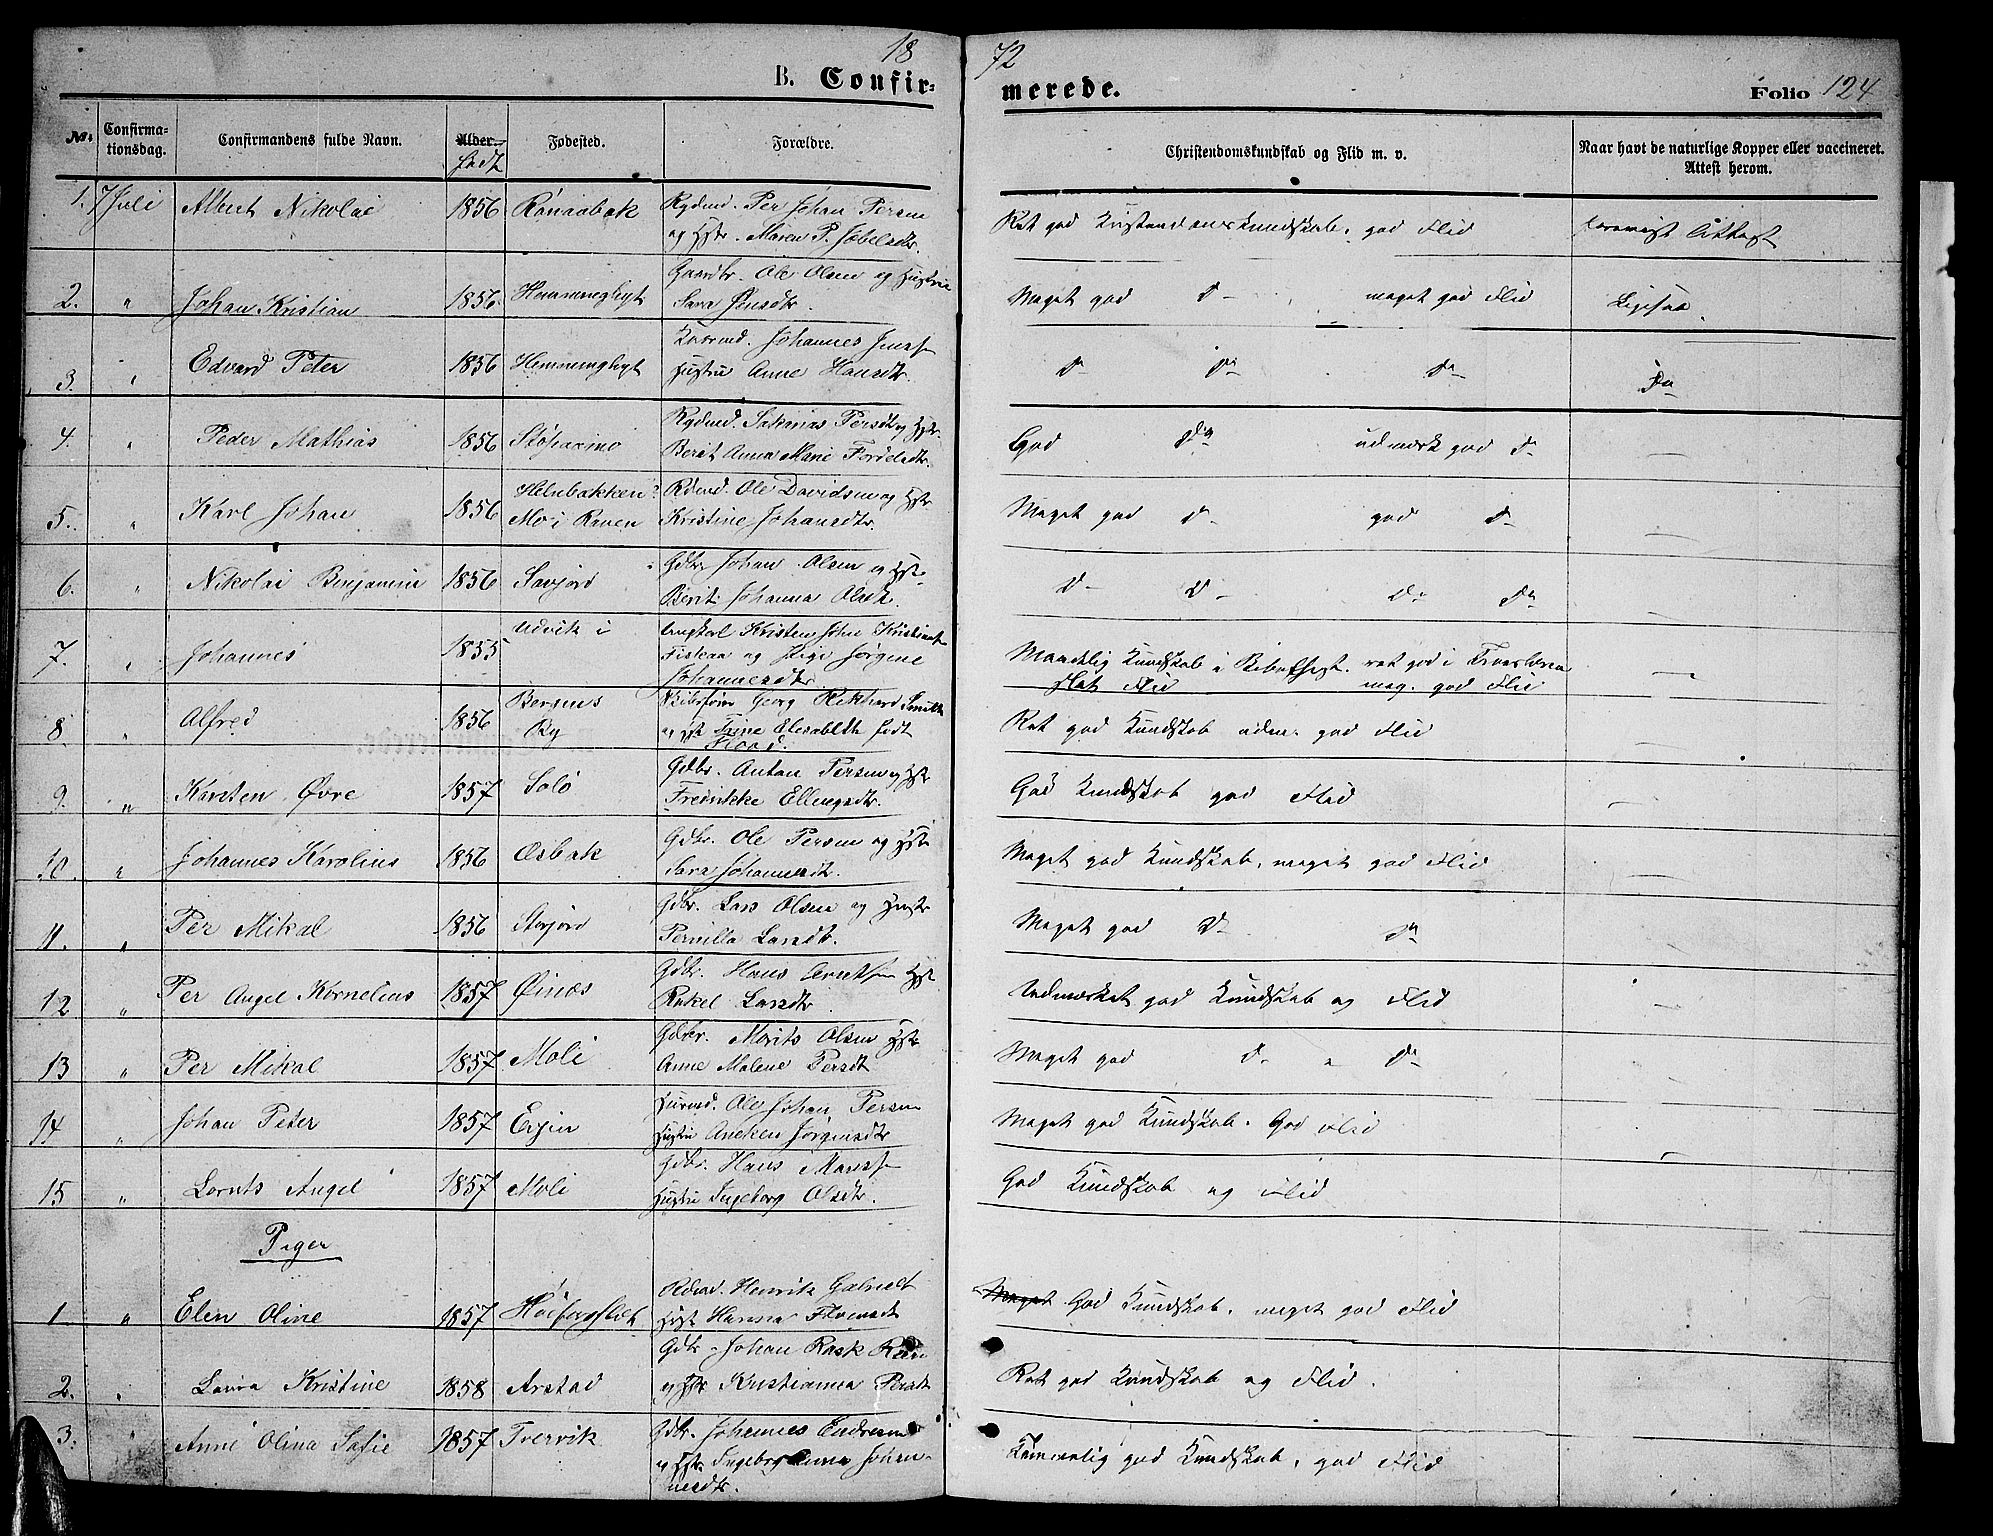 18 72
B. Confir- merede. Folio 124
No. Confirmationsdag. Confirmandens fulde Navn. Alder. Født Fødested. Forældre. Christendomskundskab og Flid m. v. Naar havt de naturlige Kopper eller vaccineret. Attest herom.
1. 7 Juli Albert Nikolai 1856 Per Johan Persen
og Hstr. Maren P. Ret god Kristendomskundskab. god Flid Attest
2. " Johan Kristian 1856 Gaardbr. Ole Olsen og Hustru
Sara Meget god D- meget god Flid Ligesaa
3. " Edvard Peter 1856 Hemminghyt Johannes
Hustru Anne Hansdtr. D- Do D- Do
4. " Peder Mathias 1856 Persen og Hstr.
Berit Anna Marie God Do udmærk god D-
5. " Karl Johan 1856 Mo i Ranen Ole Davidsen og Hst
Kristine Johansdtr. Meget god D- god D-
6. " Nikolai Benjamin 1856 Gdbr Johan Olsen og Hst.
Berit Johanna Olsdt. D- D- D- Do
7. " Johannes 1855 Udvik i Ungkarl Kristen John
og Pige Jørgine
Johannesdtr Maadelig Kundskab i ret god i
slet Flid meg. god Flid
8. " Alfred 1856 Bergens
By Georg Rikhard Smith
Trine Elesabeth født
Flid. Ret god Kundskab udm. god Flid
9. " Karsten Øvre 1857 Solø Gdbr. Anton Persen og Hst
Fredrikke Ellingsdtr. God Kundskab god Flid
10. " Johannes Karolius 1856 Osbak Gdbr. Ole Persen og Hst
Sara Johannesdtr. Meget god Kundskab, meget god Flid
11. " Per Mikal 1856 Storjord Gdbr. Lars Olsen og Hustr
Pernilla Larsdtr. Meget god D- Do
12 " Per Angel Kornelius 1857 Øinæs Gdbr. Hans Arntsen Hst
Rakel Larsdtr. Udmærket god Kundskab og Flid
13 " Per Mikal 1857 Moli Gdbr. Morits Olsen Hst
Anne Malene Persdt Meget god D- " Do
14 " Johan Peter 1857 Evjen Huusmd. Ole Johan Persen
Hustru Aneken Jørgensdtr Meget god Kundskab. God Flid
15 " Lornts Angel 1857 Moli Gdbr. Hans
Hustru Ingeborg Olsdtr. God Kundskab og Flid
Piger
1 " Elen Oline 1857 Henrik
Hst Hanna Meget God Kundskab, meget god Flid
2. " Laura Kristine 1858 Arstad Gdbr. Johan Rask
og Hstr Kristianna Persdt Ret god Kundskab og Flid.
3. " Anne Olina Sofie 1857 Tvervik Gdbr. Johannes Endresen
og Hstr Ingeborg Anna Johan-
nesdtr. Temmelig god Kundskab, god Flid